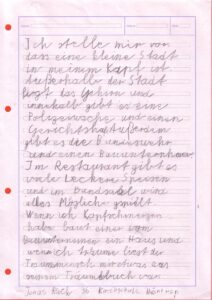 Ich stelle mir vor
dass eine kleine Stadt
in meinem Kopf ist
Außerhalb der Stadt
liegt das Gehirn und
innerhalb gibt es eine
Polizeiwache und einen
Gerichtshof Außerdem
gibt es die
und einen
Im Restaurant gibt es
viele leckere Speisen
und im wird
alles Mögliche
Wenn ich Kopfschmerzen
habe baut einer vom
ein Haus und
wenn ich träume liest der
Traummensch
seinem Traumbuch vor
Jonas 3b